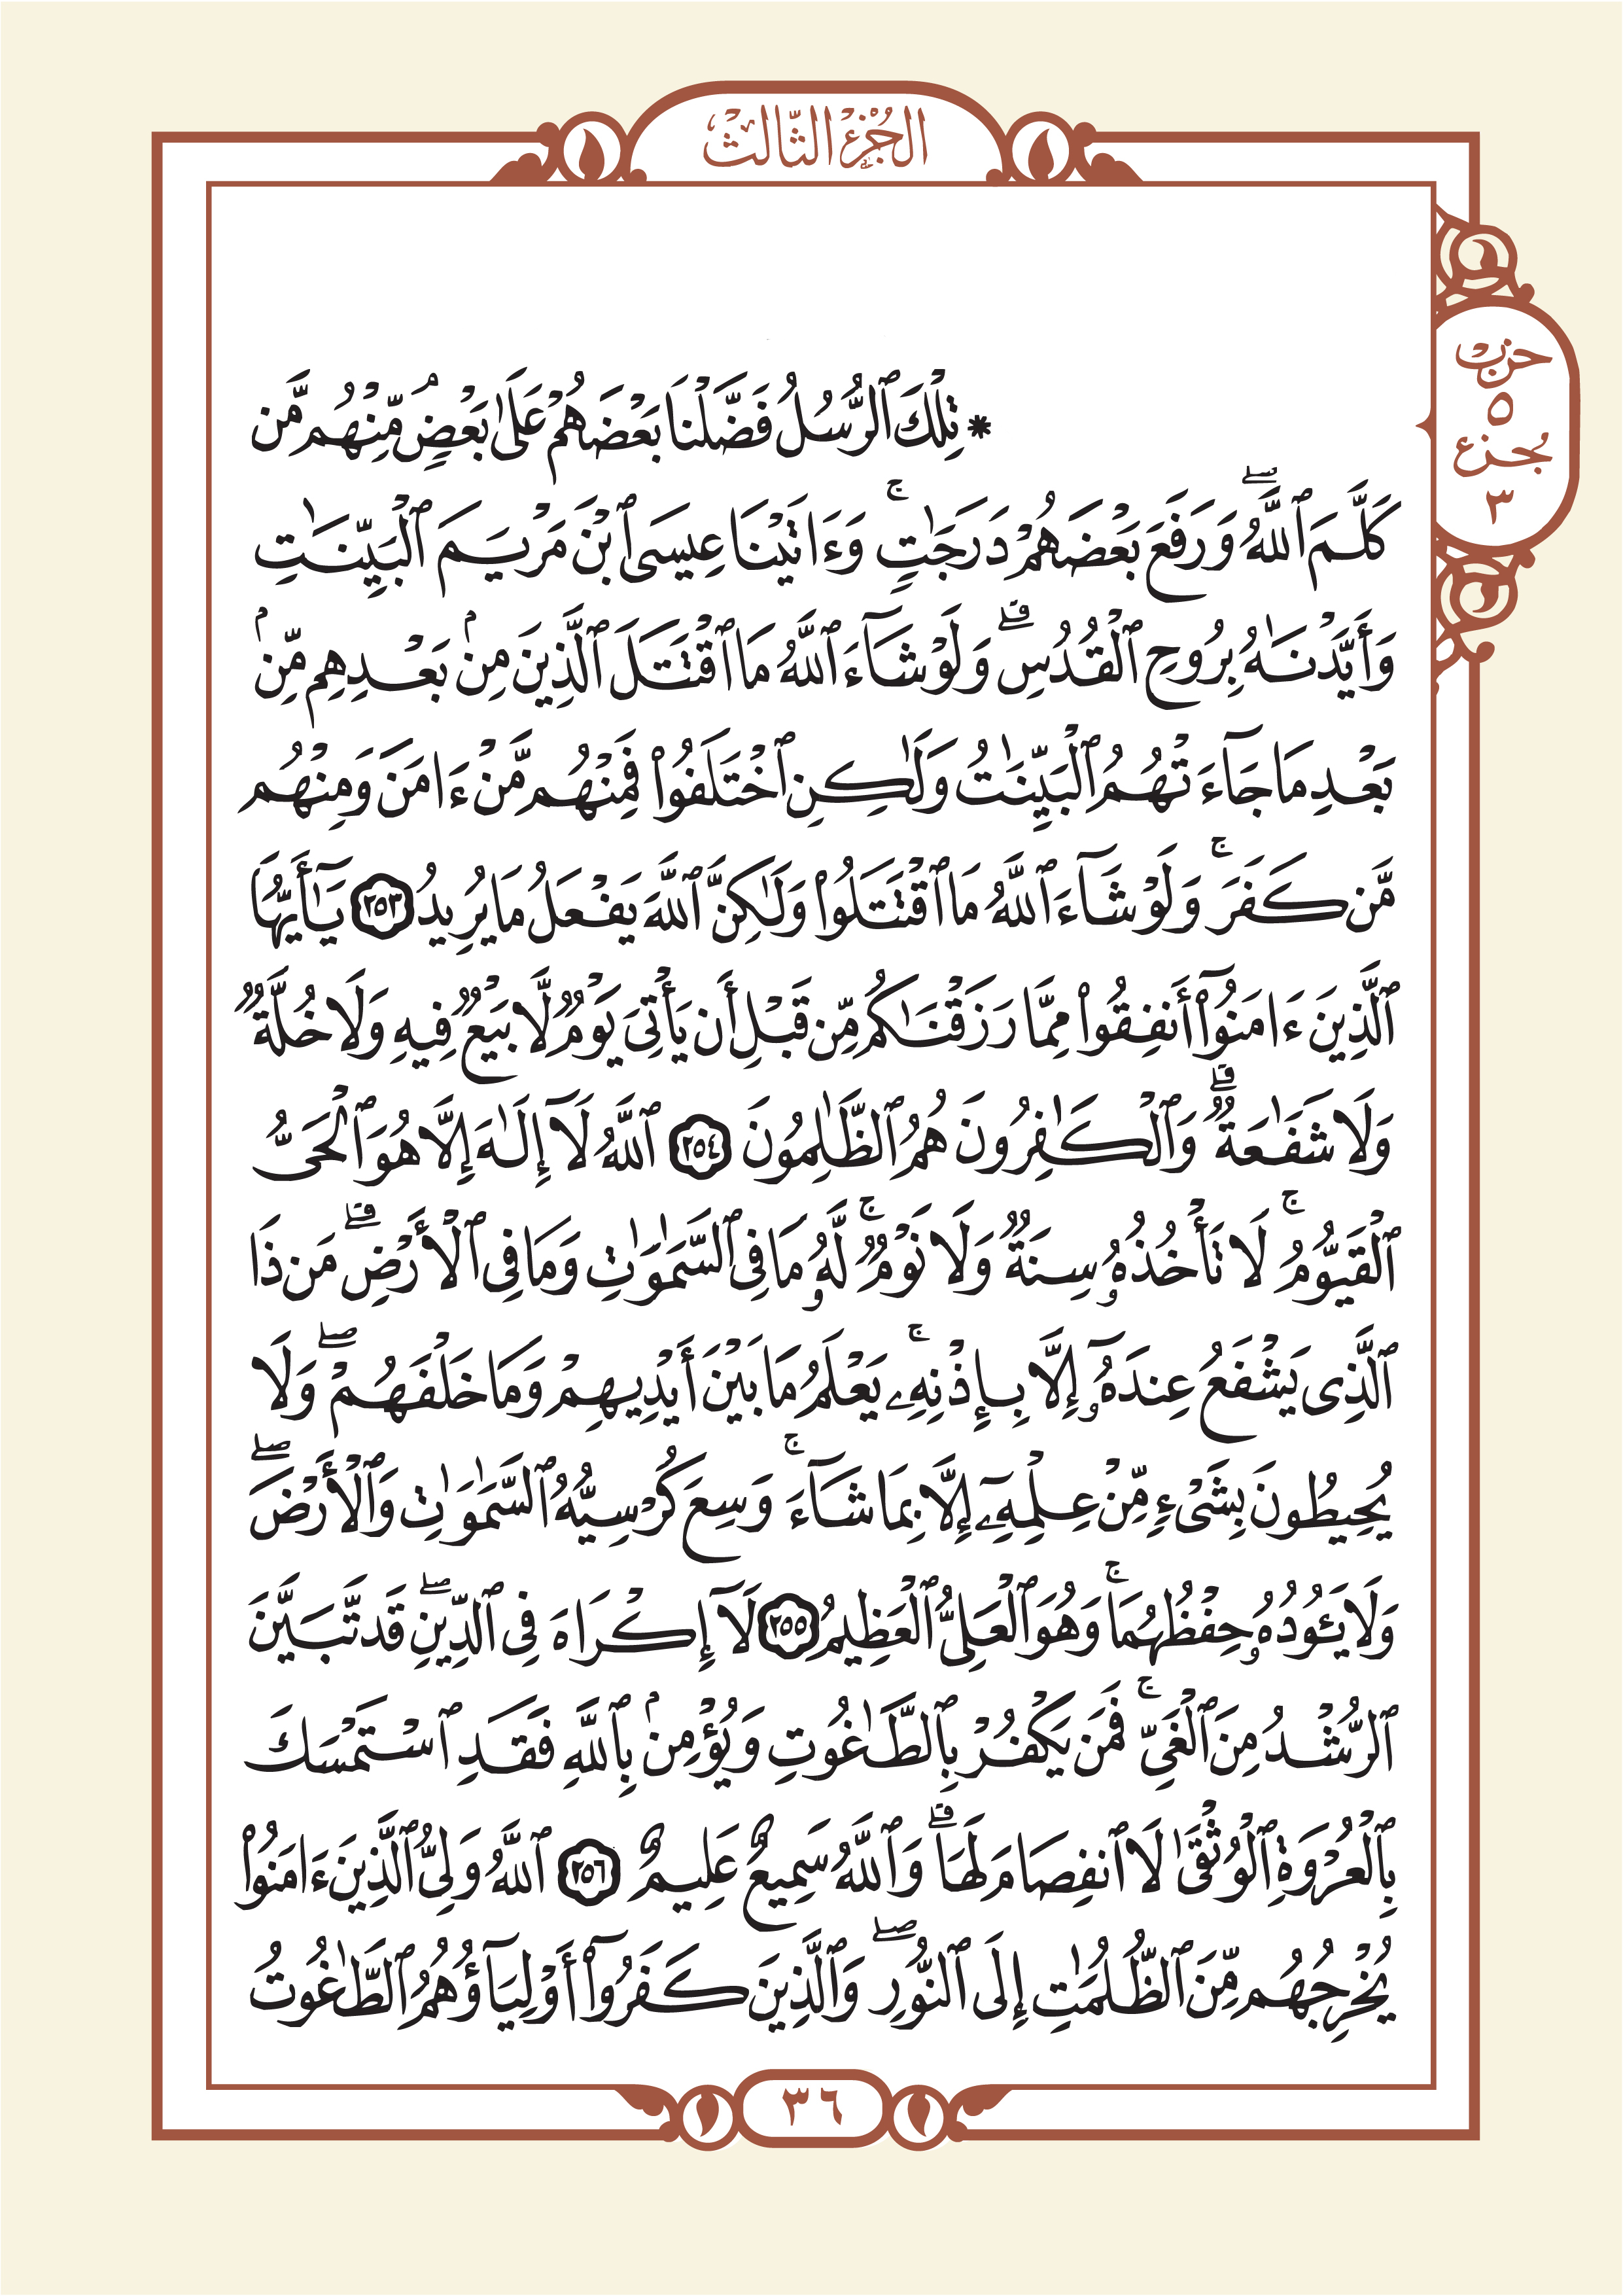 الجُزْءُ الثَّالِثُ
حِزْبٌ
٥
جُزْءٌ
٣
* تِلْكَ ٱلرُّسُلُ فَضَّلْنَا بَعْضَهُمْ عَلَىٰ بَعْضٍۢ مِّنْهُم مَّن
كَلَّمَ ٱللَّهُۖ وَرَفَعَ بَعْضَهُمْ دَرَجَٰتٍۚ وَءَاتَيْنَا عِيسَى ٱبْنَ مَرْيَمَ ٱلْبَيِّنَٰتِ
وَأَيَّدْنَٰهُ بِرُوحِ ٱلْقُدُسِۗ وَلَوْ شَآءَ ٱللَّهُ مَا ٱقْتَتَلَ ٱلَّذِينَ مِنۢ بَعْدِهِم مِّنۢ
بَعْدِ مَا جَآءَتْهُمُ ٱلْبَيِّنَٰتُ وَلَٰكِنِ ٱخْتَلَفُوا۟ فَمِنْهُم مَّنْ ءَامَنَ وَمِنْهُم
مَّن كَفَرَۚ وَلَوْ شَآءَ ٱللَّهُ مَا ٱقْتَتَلُوا۟ وَلَٰكِنَّ ٱللَّهَ يَفْعَلُ مَا يُرِيدُ ٢٥٣ يَٰٓأَيُّهَا
ٱلَّذِينَ ءَامَنُوٓا۟ أَنفِقُوا۟ مِمَّا رَزَقْنَٰكُم مِّن قَبْلِ أَن يَأْتِىَ يَوْمٌ لَّا بَيْعٌ فِيهِ وَلَا خُلَّةٌ
وَلَا شَفَٰعَةٌۗ وَٱلْكَٰفِرُونَ هُمُ ٱلظَّٰلِمُونَ ٢٥٤ ٱللَّهُ لَآ إِلَٰهَ إِلَّا هُوَ ٱلْحَىُّ
ٱلْقَيُّومُۚ لَا تَأْخُذُهُۥ سِنَةٌ وَلَا نَوْمٌۚ لَّهُۥ مَا فِى ٱلسَّمَٰوَٰتِ وَمَا فِى ٱلْأَرْضِۗ مَن ذَا
ٱلَّذِى يَشْفَعُ عِندَهُۥٓ إِلَّا بِإِذْنِهِۦۚ يَعْلَمُ مَا بَيْنَ أَيْدِيهِمْ وَمَا خَلْفَهُمْۖ وَلَا
يُحِيطُونَ بِشَىْءٍ مِّنْ عِلْمِهِۦٓ إِلَّا بِمَا شَآءَۚ وَسِعَ كُرْسِيُّهُ ٱلسَّمَٰوَٰتِ وَٱلْأَرْضَۖ
وَلَا يَـُٔودُهُۥ حِفْظُهُمَاۚ وَهُوَ ٱلْعَلِىُّ ٱلْعَظِيمُ ٢٥٥ لَآ إِكْرَاهَ فِى ٱلدِّينِۖ قَد تَّبَيَّنَ
ٱلرُّشْدُ مِنَ ٱلْغَىِّۚ فَمَن يَكْفُرْ بِٱلطَّٰغُوتِ وَيُؤْمِنۢ بِٱللَّهِ فَقَدِ ٱسْتَمْسَكَ
بِٱلْعُرْوَةِ ٱلْوُثْقَىٰ لَا ٱنفِصَامَ لَهَاۗ وَٱللَّهُ سَمِيعٌ عَلِيمٌ ٢٥٦ ٱللَّهُ وَلِىُّ ٱلَّذِينَ ءَامَنُوا۟
يُخْرِجُهُم مِّنَ ٱلظُّلُمَٰتِ إِلَى ٱلنُّورِۖ وَٱلَّذِينَ كَفَرُوٓا۟ أَوْلِيَآؤُهُمُ ٱلطَّٰغُوتُ
٣٦